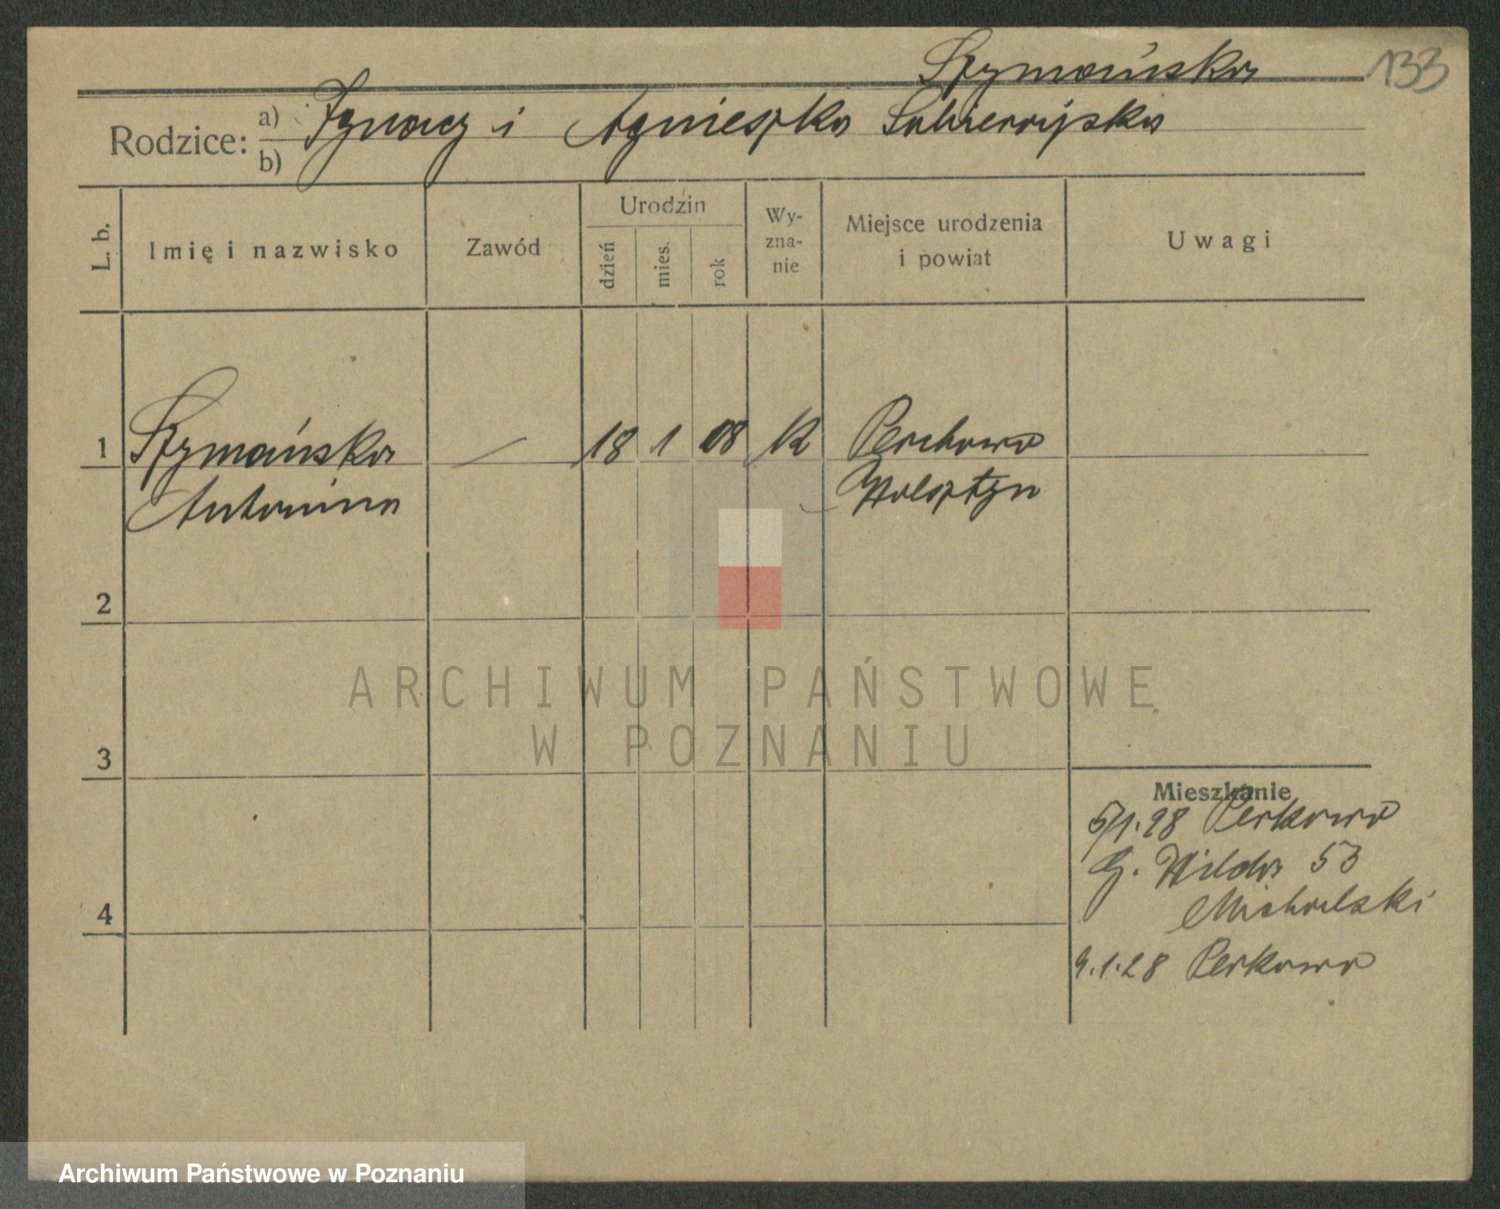 Szymańska 133
Rodzice: a) Ignacy i Agnieszka
b)
L. b. Imię i nazwisko Zawód Urodzin dzień mies. rok Wyzna-nie Miejsce urodzenia i powiat Uwagi
1 Szymańska — 18 1 08 K Perkowo
Antonina Wolsztyn
2
3
Mieszkanie
5/1.28 Perkowo
G. Wilda 53
4 Michalski
9.1.28 Perkowo
ARCHIWUM PAŃSTWOWE
W POZNANIU
Archiwum Państwowe w Poznaniu